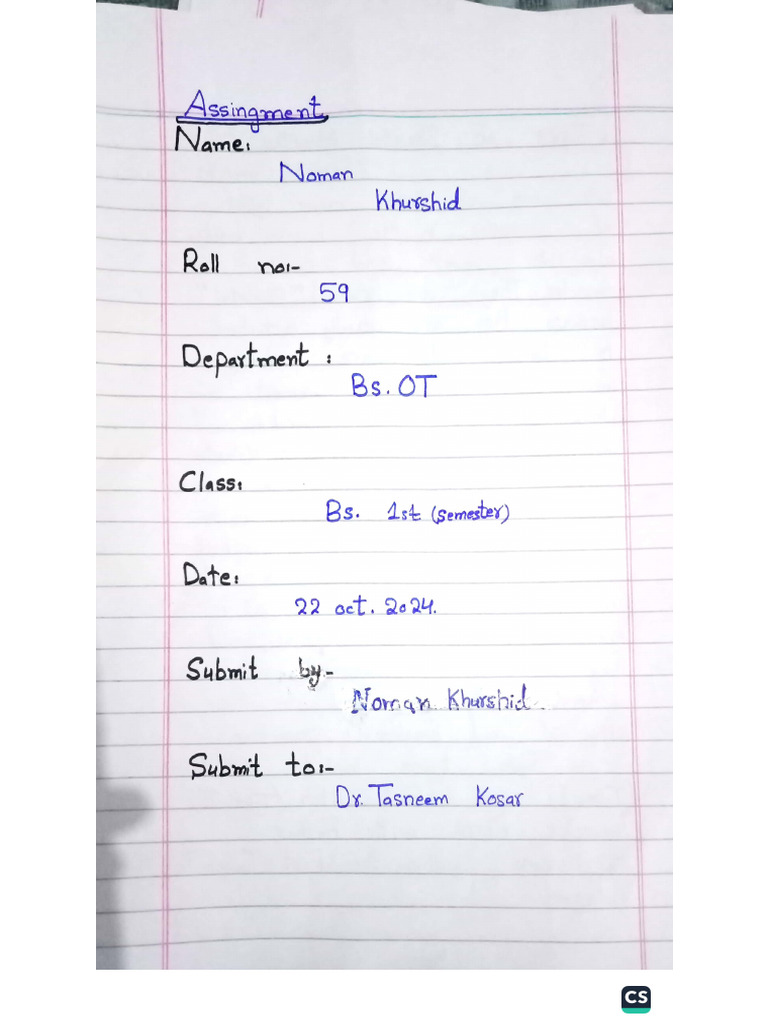 Assingment
Name:
Noman
Khurshid
Roll no:-
59
Department :
Bs. OT
Class:
Bs. 1st (semester)
Date:
22 oct. 2024.
Submit by-
Noman Khurshid.
Submit to:-
Dr. Tasneem Kosar
CS